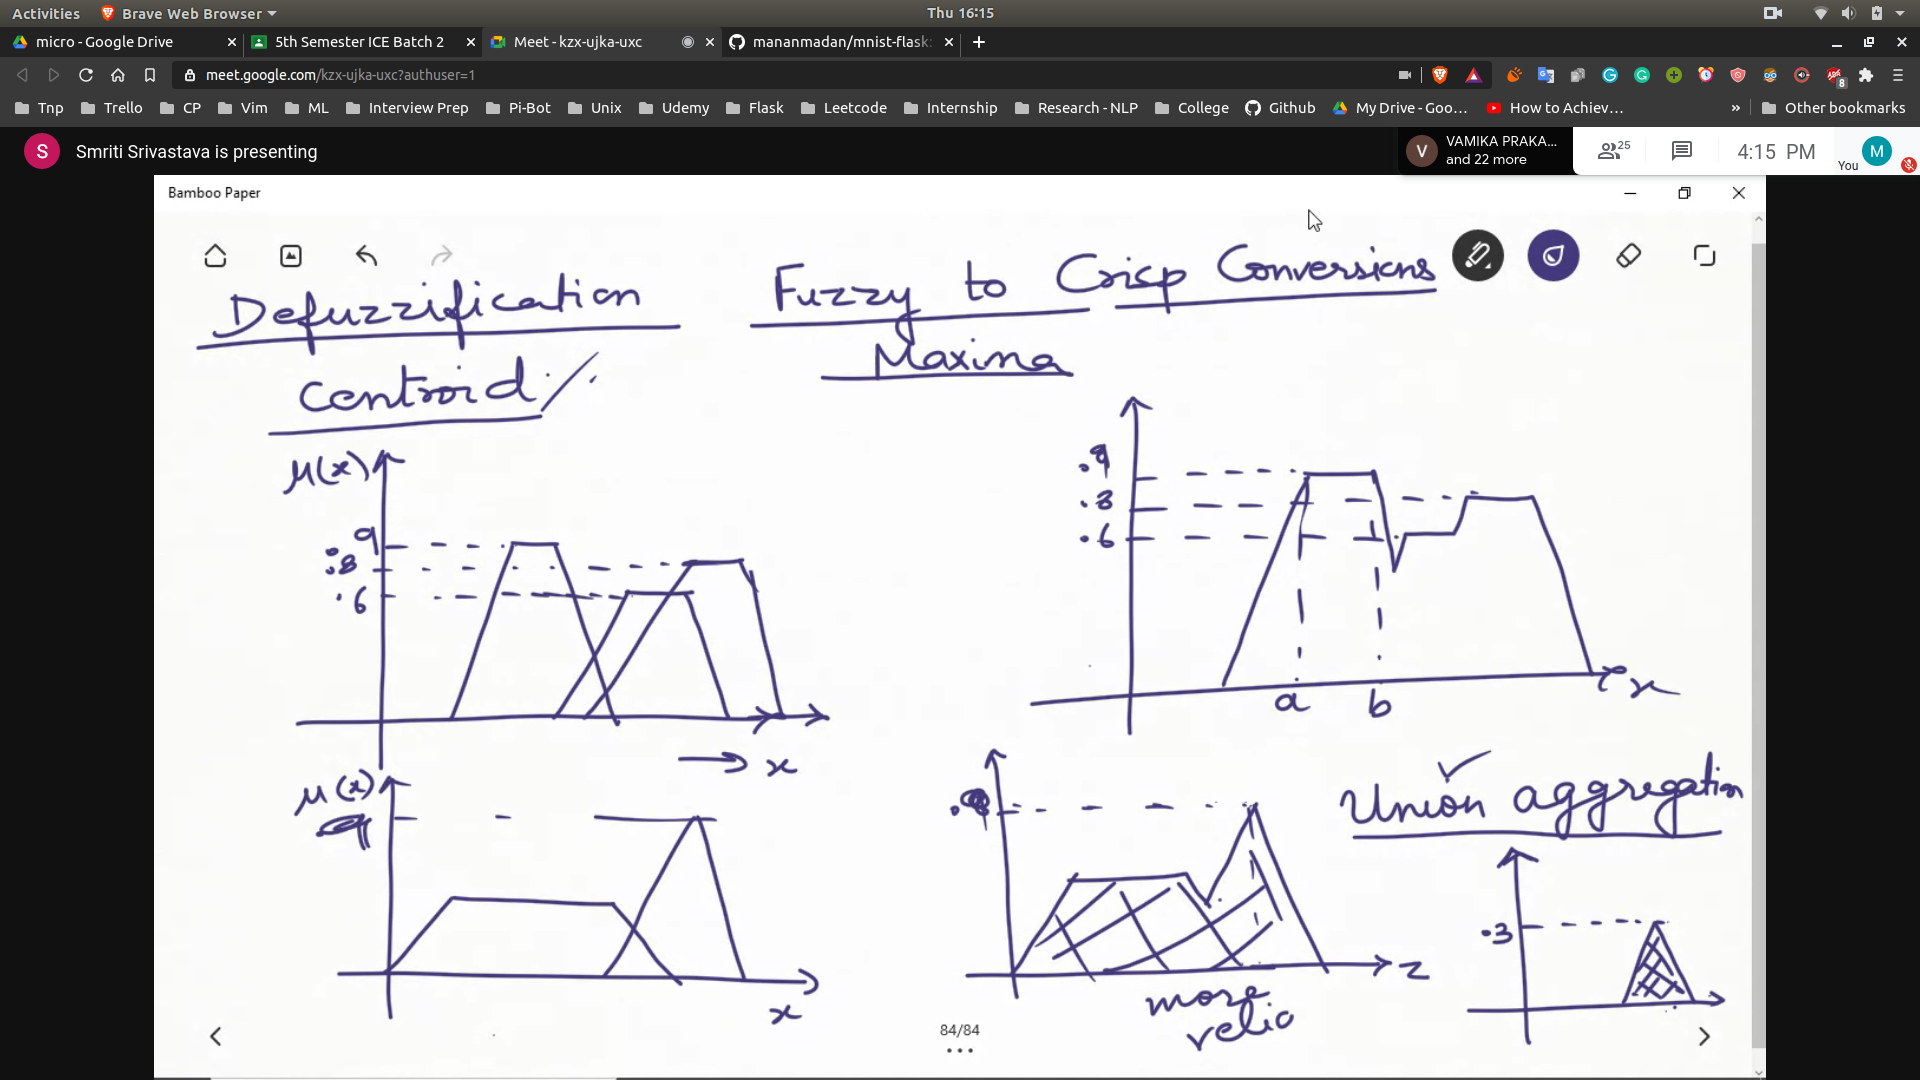 Activities Brave Web Browser Thu 16:15
micro - Google Drive 5th Semester ICE Batch 2 Meet - kzx-ujka-uxc mananmadan/mnist-flask:
meet.google.com/kzx-ujka-uxc?authuser=1 8
Tnp Trello CP Vim ML Interview Prep Pi-Bot Unix Udemy Flask Leetcode Internship Research - NLP College Github My Drive - Goo... How to Achiev... » Other bookmarks
S Smriti Srivastava is presenting
V VAMIKA PRAKA...
and 22 more
25 4:15 PM You M
Bamboo Paper
Defuzzification Fuzzy to Crisp Conversions
Centroid Maxima
μ(x)
.9
.8
.6
x
.9
.8
.6
a b x
μ(x)
x
z
more
Union aggregation
.3
84/84